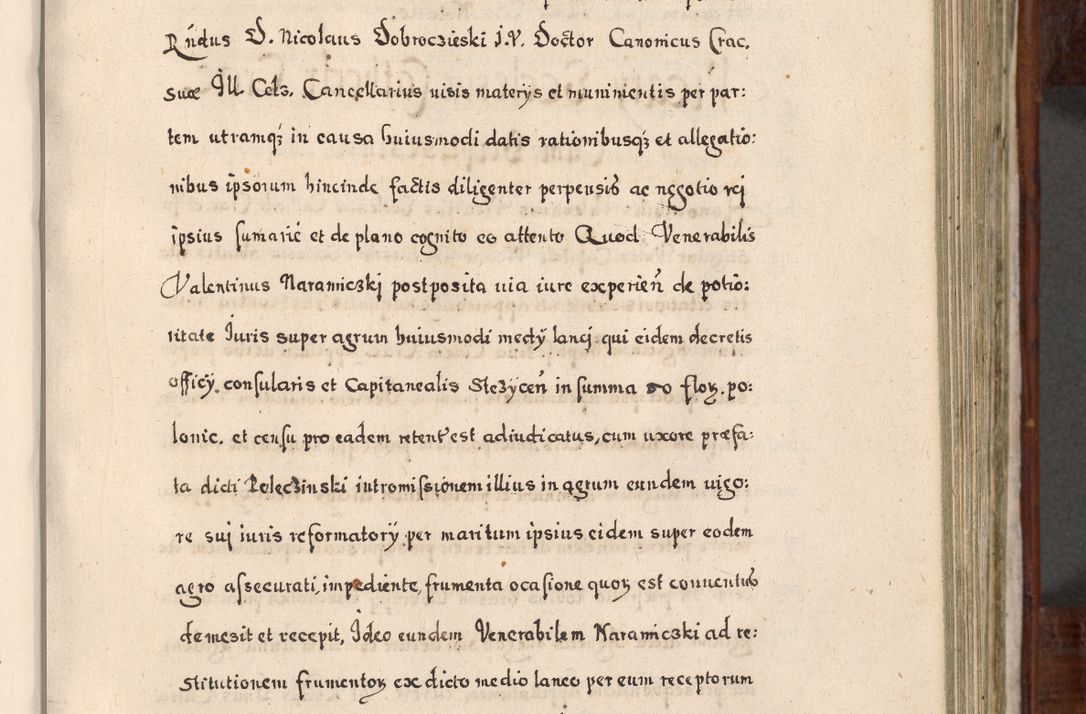 Rńdus D. Nicolaus Dobroczieski J.V. Doctor Canonicus Crac.
suæ Ill. Cels. Cancellarius uisis materijs et munimentis per par:
tem utramqȝ in causa huiusmodi datis rationibusqȝ et allegatio:
nibus ipsorum hincinde factis diligenter perpensis ac negotio rej
ipsius sumarie et de plano cognito eo attento Quod Venerabilis
Valentinus Naramiczkj postposita uia iure experień de potio:
ritate Juris super agrum huiusmodi medÿ lanej qui eidem decretis
officÿ consularis et Capitanealis Stezÿceń in summa 50 floꝝ. po:
lonic. et censu pro eadem retent' est adiudicatus, cum uxore præfa:
ta dicti Peleczinski intromissionem illius in agrum eundem uigo:
re suj iuris reformatorÿ per maritum ipsius eidem super eodem
agro assecurati, impediente, frumenta ocasione quoꝝ est conuentus
demesit et recepit, Ideo eundem Venerabilem Naramiczki ad re:
stitutionem frumentoꝝ ex dicto medio laneo per eum receptorum